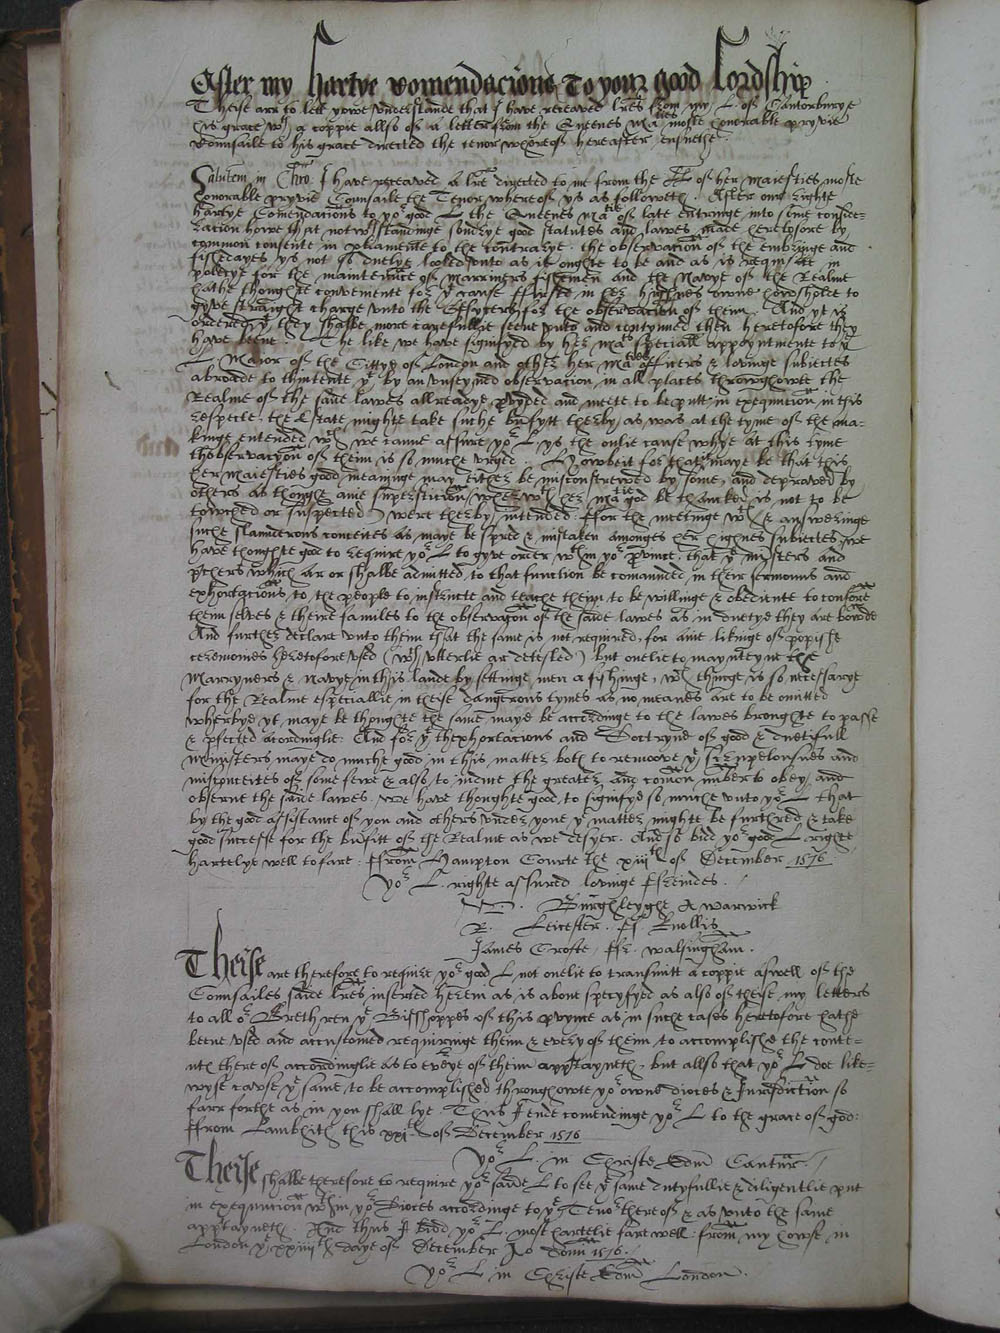 After my hartye comendacions to your good Lordship
Theise are to lett yowe understande that I have receaved lres from my L. of Cantorburye
his grace wth a coppie allso of a letter from the Queenes Matties moste honorable pryvie
Counsaile to his grace directed the tenor whereof hereafter ensuethe.
Salutem in Chro. I have receaved a lre directed to me from the LL of her Maiesties moste
honorable pryvie Counsaile, the Tenor whereof ys as followeth. After our righte
hartye Comendacions to yor good L. the Queenes Matie of late entringe into some conside-
racion howe that notwthstandinge sondrye good statutes and lawes made heretofore by
common consente in pliamente to the contrarye. the observacion of the embringe and
fishedayes ys not so duelye looked unto as it oughte to be and as is requisite in
pollecye for the maintenance of marriners fishermen and the Navye of the Realme
hathe thoughte conveniente for ye cause Ffirste in her highnes owne howsholde to
gyve straighte charge unto the Officers for the observacion of them. And yt is
ordered yt they shalbe more carefullie seene unto and contynued then heretofore they
have beene. The like we have signifyed by her Mats speciall appoyntmente to ye
L. Maior of the Cittye of London and other her Maties officers & lovinge subiectes
abroade to thintente yt by an unfeyned observacion in all places throwghowte the
Realme of the saide lawes allreadye pvyded and meete to be putt in exequution in this
respecte, the estate mighte take suche benyfytt therby, as was at the tyme of the ma-
kinge entended wch we canne assure yor L. ys the onlie cause whye at this tyme
thobservacyon of theim is so muche urged. Howbeit for that yt maye be that this
her maiesties good meaninge may either be misconstrewed by some, and depraved by
others as thoughe anie superstition (wherwth her Matie god be thancked is not to be
towched or suspected) were therby intended. Ffor the meetinge wth & answeringe
suche slaunderous conceites as maye be spred & mistaken amongst her highnes subiectes, we
have thoughte god to require yor L. to gyve order wthin yor Province, that ye ministers and
prchers which ar or shalbe admitted to that function be comaunded in their sermonns and
exhortacions, to the people to instructe and teache theim to be willinge & obediente to conforme
them selves & theire familes to the observacon of the saide lawes as in duetye they are bownde
And further declare unto theim that the same is not required, for anie likinge of popishe
ceremonies heretofore used (wch utterlie ar detested) but onelie to maynteyne the
Marryners & Navye in this lande by settinge men a fishinge, wch thinge is so necessarye
for the Realme especiallie in theise dangerous tymes as no meanes are to be omitted
wherbye yt maye be thoughte the same maye be accordinge to the lawes broughte to passe
& pfected acordinglie: And for yt thexhortacions and Doctryne of good & duetifull
ministers maye do muche good in this matter both to remoove ye scrupelousnes and
misconceites of some fewe & also to induce the greater and comon number to obey, and
observe the saide lawes. We have thoughte good to signifye so muche unto yor L. that
by the good assistance of you and others under youe ye matter mighte be furthred & take
good successe for the benifitt of the Realme as we desyer. And so bid yor good L. righte
hartelye well to fare: Ffrom Hampton Courte the xiiith of December 1576
Yor L. righte assured lovinge Ffreindes.
W. Burghleyghe A Warwick
R. Leicester. Ff Knollis
James Crofte, Ffr. Walsingham.
Theise are therefore to require yor good L. not onelie to transmitt a coppie aswell of the
Counsailes saide lres inserted herein as is above specyfyed as also of theise my letters
to all or Brethren ye Bisshoppes of this pvynce as in suche cases heretofore hathe
beene used and accustomed requiringe theim & every of theim to accomplishe the conte-
ntes there of accordinglie as to everye of theim apptayneth, but allso that yor L. doe like-
wyse cause ye same to be accomplished throughowte yor owne dioces & Jurisdiction so
farr forthe as in you shall lye. Thus I ende comendinge yor L. to the grace of god:
Ffrom Lambhith this xxith of December 1576
Yor L. in Christe Edm Cantuar.
Theise shalbe therefore to require yor saide L. to see ye same dutyfullie & diligentlie put
in exequucion wthin yor Dioces accordinge to ye Tenor thereof & as unto the same
apptayneth. And thus I bidd yor L. most hartelie fare well: from my howse in
London ye xxiiiith daye of December Ao Domi 1576.
Yor L. in Christe Edm London.